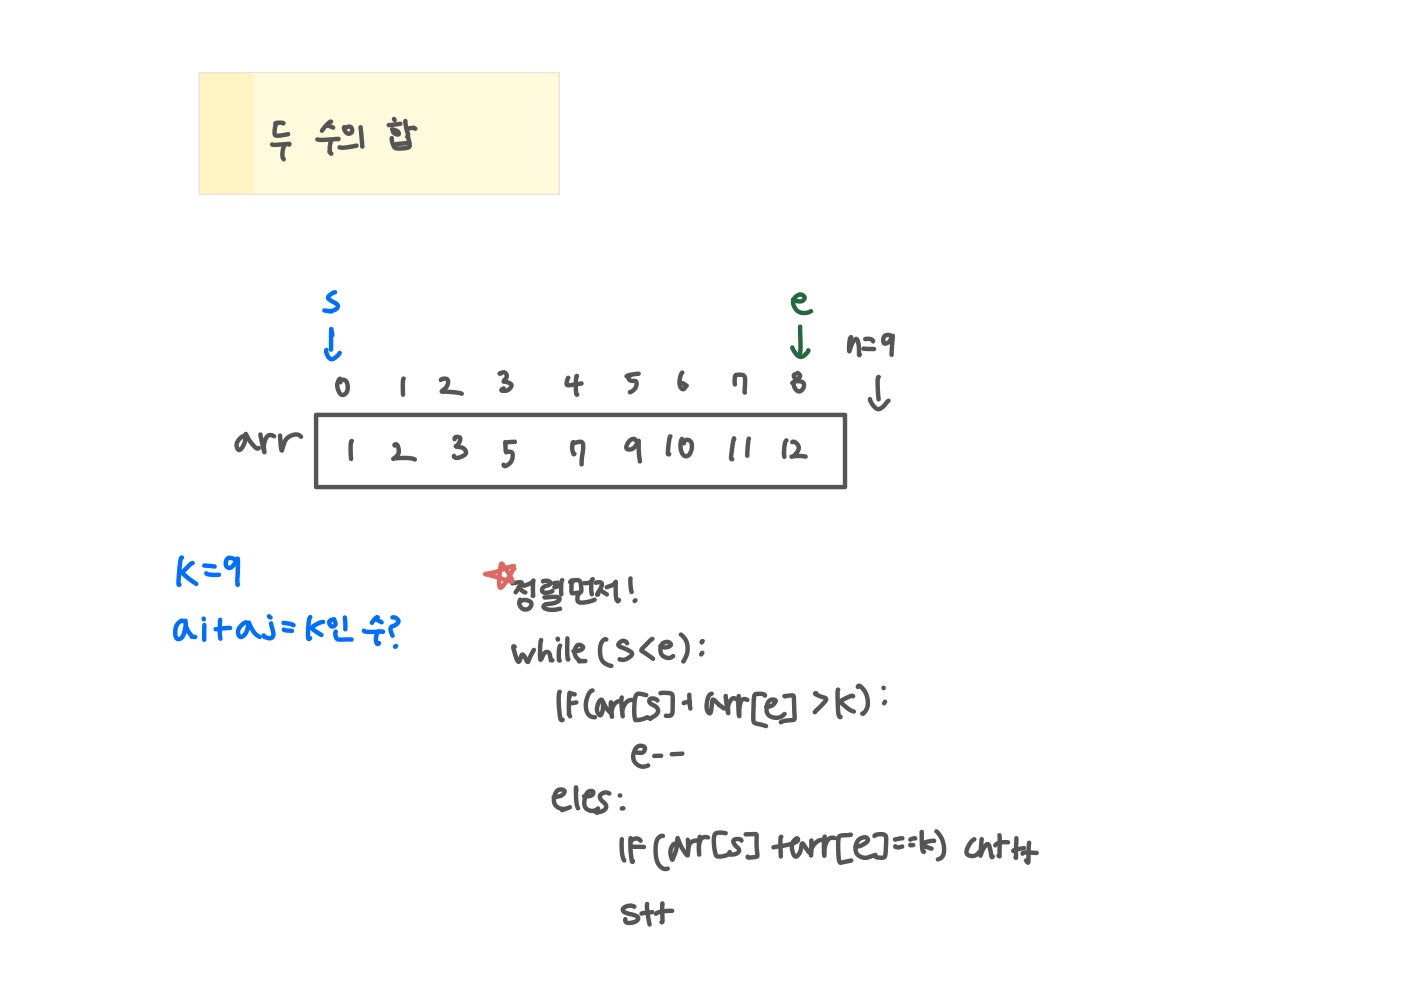 두 수의 합
s e
n=9
0 1 2 3 4 5 6 7 8
arr 1 2 3 5 7 9 10 11 12
k=9
ai+aj=k인 수?
정렬먼저!
while (s<e):
IF(arr[s]+arr[e] >k):
e--
eles:
IF(arr[s]+arr[e]==k) cnt++
s++